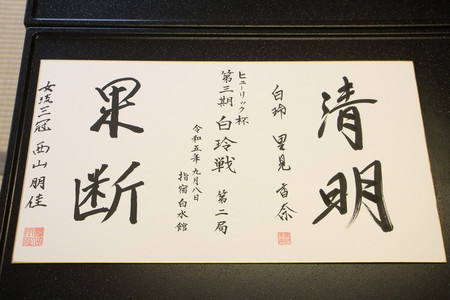 清明
白玲 里見 香奈
ヒューリック杯
第三期 白玲戦 第二局
令和五年九月八日
指宿白水館
果断
女流三冠 西山 朋佳